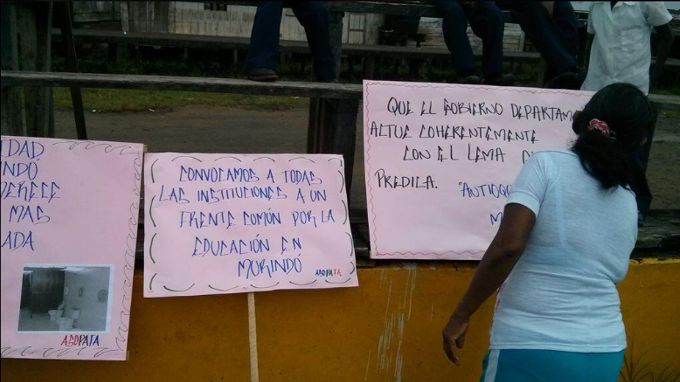 MAS
ADA
AGOPATA
CONVOCAMOS A TODAS
LAS INSTITUCIONES A UN
FRENTE COMÚN POR LA
EDUCACIÓN EN
MURINDÓ
AGOPATA
QUE EL GOBIERNO DEPARTAM
ACTUE COHERENTEMENTE
CON EL LEMA
PREDICA. "ANTIOQ
M